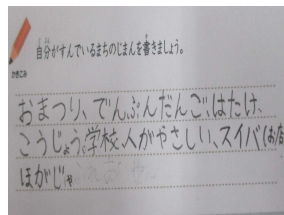 自分がすんでいるまちのじまんを書きましょう。
かきこみ
おまつり、でんぶんだんご、はたけ、
こうじょう学校、人がやさしい、スイバ(お店
ほがじゃ